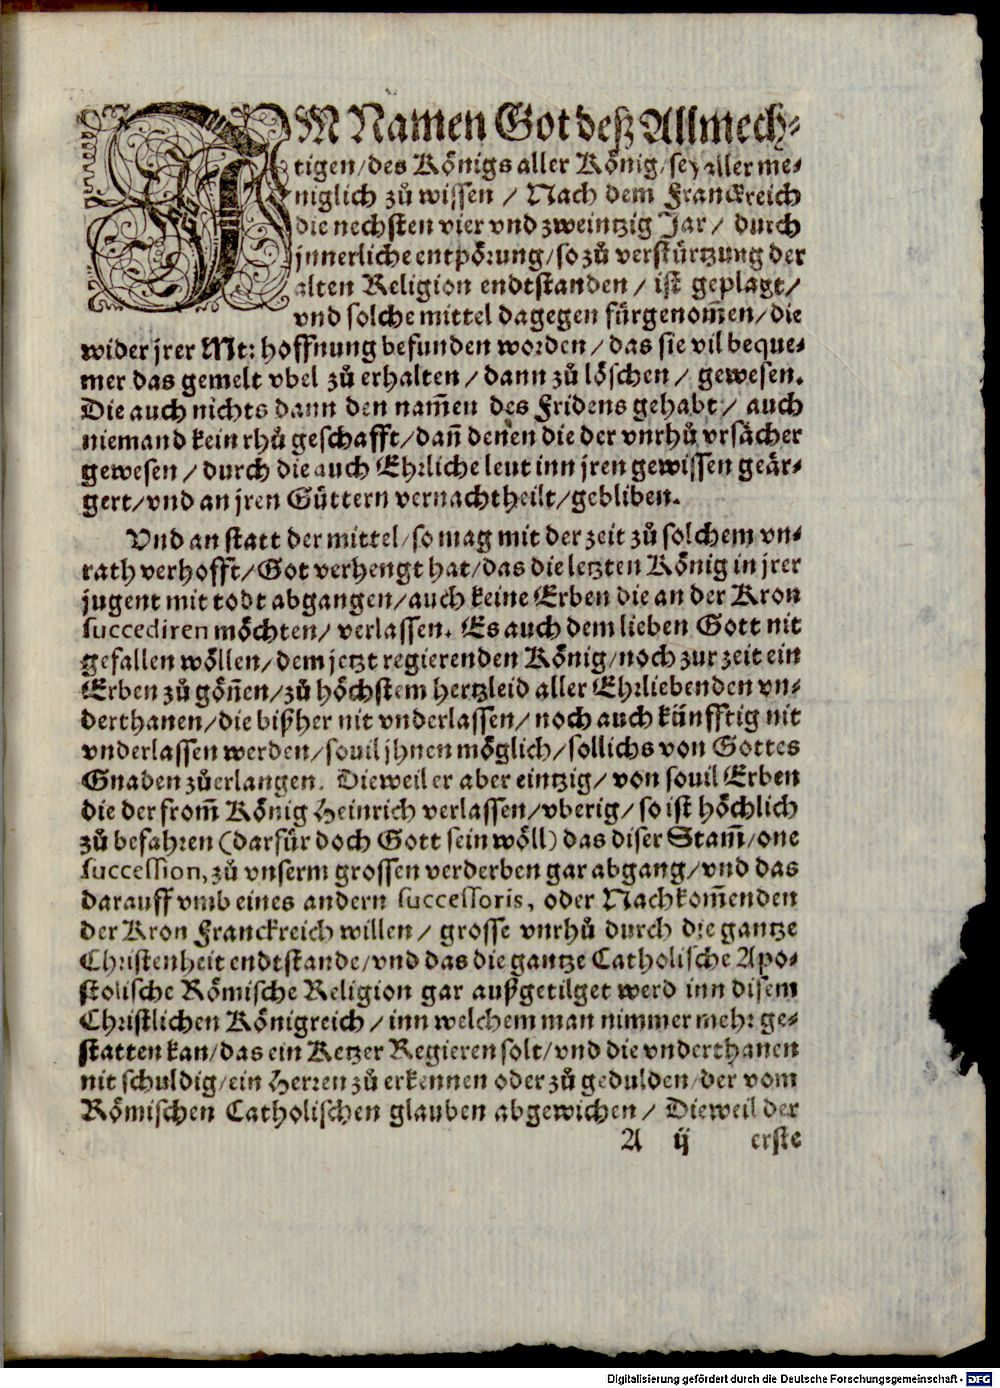 IM Namen Got deß Allmech-
tigen/des Königs aller König/sey aller me-
niglich zů wissen / Nach dem Franckreich
die nechsten vier vnd zweintzig Jar/ durch
jnnerliche entpörung/so zů verstürtzung der
alten Religion endtstanden/ ist geplagt/
vnd solche mittel dagegen fürgenom̄en/die
wider jrer Mt: hoffnung befunden worden/das sie vil beque-
mer das gemelt vbel zů erhalten/dann zů löschen/ gewesen.
Die auch nichts dann den nam̄en des Fridens gehabt/ auch
niemand kein rhů geschafft/dan̄ denen die der vnrhů vrsächer
gewesen/durch die auch Ehrliche leut inn jren gewissen geär-
gert/vnd an jren Güttern vernachtheilt/gebliben.
Vnd an statt der mittel/so mag mit der zeit zů solchem vn-
rath verhofft/Got verhengt hat/das die letzten König in jrer
jugent mit todt abgangen/auch keine Erben die an der Kron
succediren möchten/ verlassen. Es auch dem lieben Gott nit
gefallen wöllen/dem jetzt regierenden König/noch zur zeit ein
Erben zů gön̄en/zů höchstem hertzleid aller Ehrliebenden vn-
derthanen/die bißher nit vnderlassen/noch auch künfftig nit
vnderlassen werden/souil jhnen möglich/sollichs von Gottes
Gnaden zůerlangen. Dieweil er aber eintzig/von souil Erben
die der from̄ König Heinrich verlassen/vberig/so ist höchlich
zů befahren (darfür doch Gott sein wöll) das diser Stam̄/one
succession, zů vnserm grossen verderben gar abgang/vnd das
darauff vmb eines andern successoris, oder Nachkom̄enden
der Kron Franckreich willen/ grosse vnrhů durch die gantze
Christenheit endtstande/vnd das die gantze Catholische Apo-
stolische Römische Religion gar außgetilget werd inn disem
Christlichen Königreich/inn welchem man nimmer mehr ge-
statten kan/das ein Ketzer Regieren solt/vnd die vnderthanen
nit schuldig/ein Herren zů erkennen oder zů gedulden/der vom
Römischen Catholischen glauben abgewichen/ Dieweil der
A ij erste
Digitalisierung gefördert durch die Deutsche Forschungsgemeinschaft - DFG